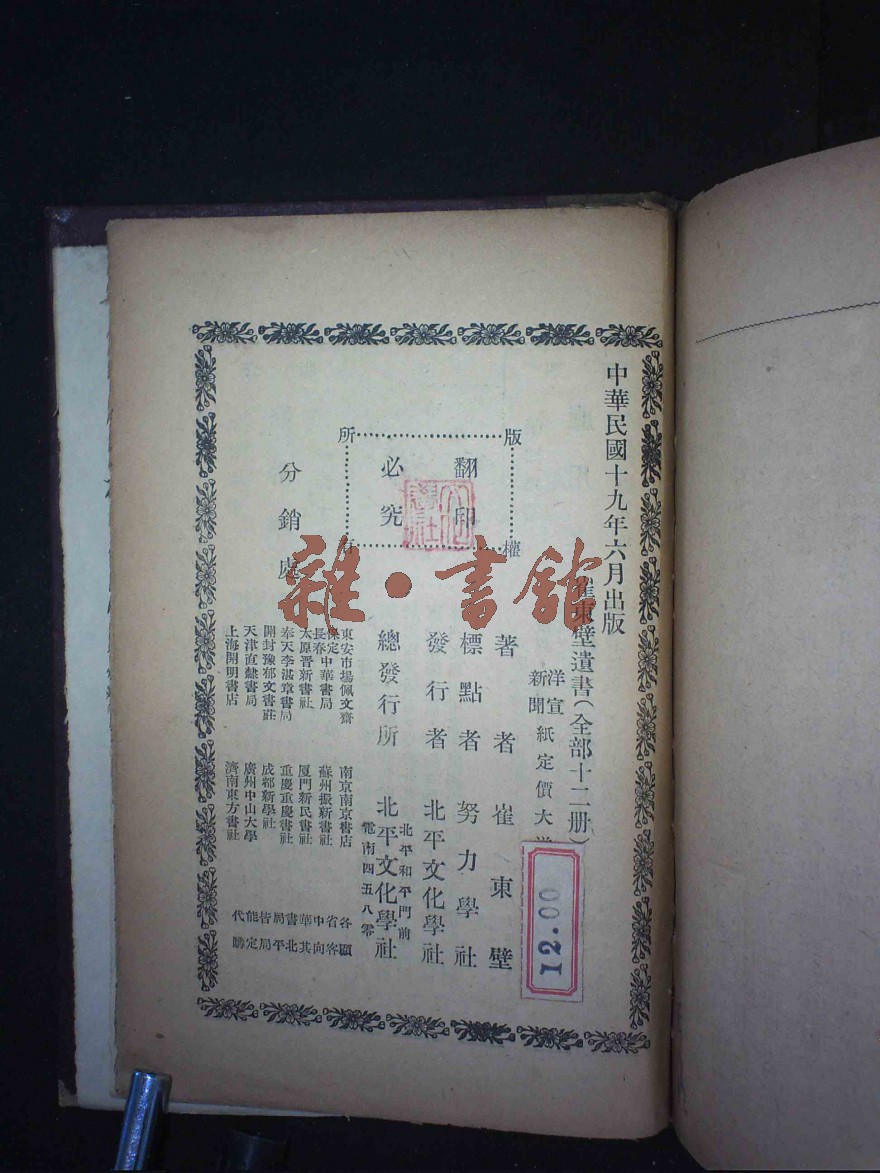 中華民國十九年六月出版
崔東壁遺書(全部十二册)
洋宣
新聞
紙定價大洋
12.00
著者崔東壁
標點者努力學社
發行者北平文化學社
總發行所北平文化學社
北平和平門前
電南四五八零
版權所有
翻印
必究
分銷處
東安市場佩文齋
保定中華書局
長春
太原晋新書社
奉天李湛章書局
開封豫郁文書莊
天津直隸書局
上海開明書店
南京南京書店
蘇州振新書社
厦門新民書社
重慶重慶書社
成都新學社
廣州中山大學
濟南東方書社
各省中華書局皆能代
顧客向其北平局定購
雜·書舘